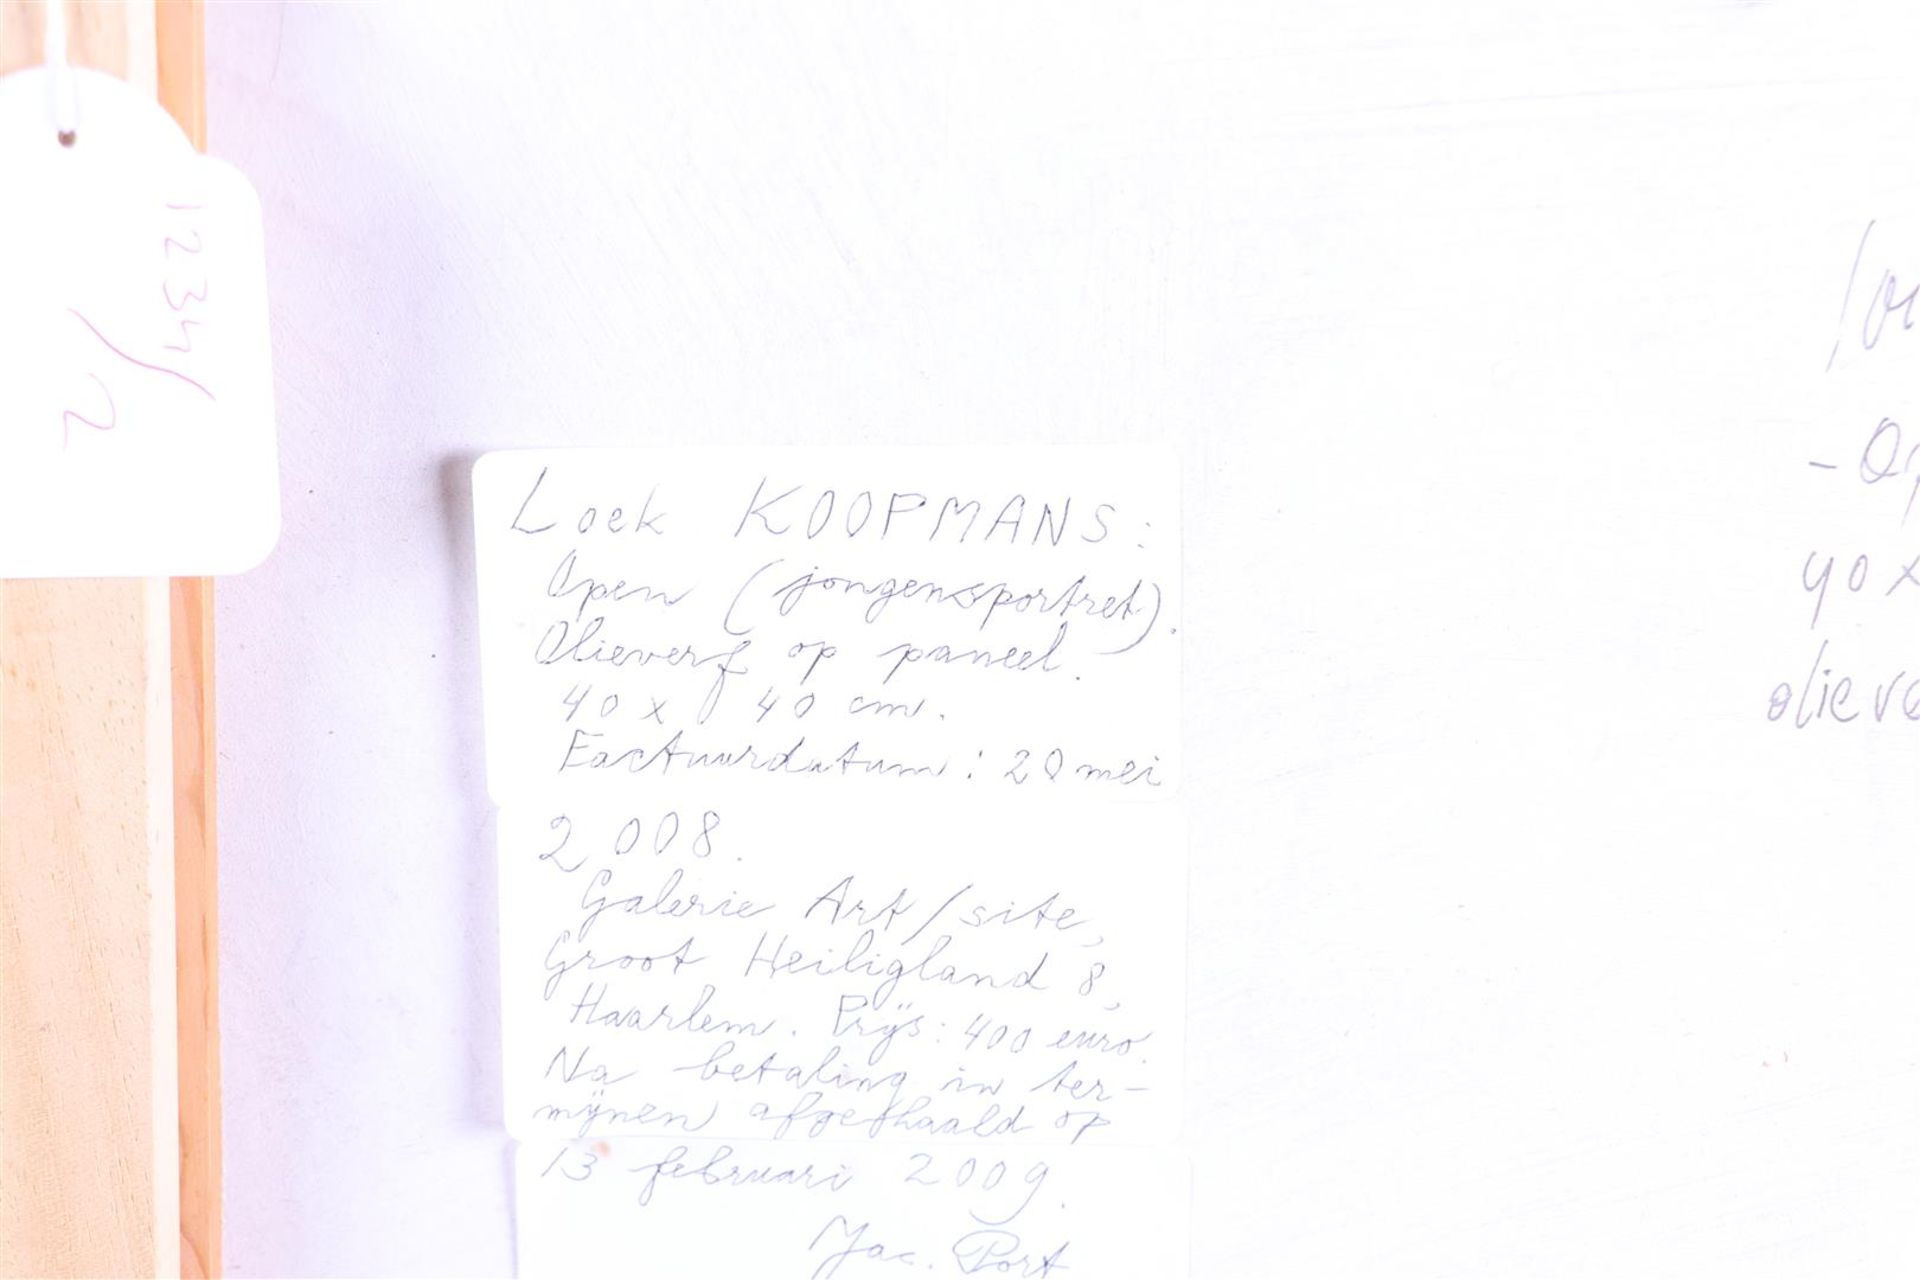 1234/
2
Loek KOOPMANS:
Open (jongensportret).
Olieverf op paneel.
40 x 40 cm.
Factuurdatum: 20 mei
2008.
Galerie Art/site,
Groot Heiligland 8,
Haarlem. Prijs: 400 euro.
Na betaling in ter-
mijnen afgehaald op
13 februari 2009.
Jac. Port
- Op
40 x
olieve